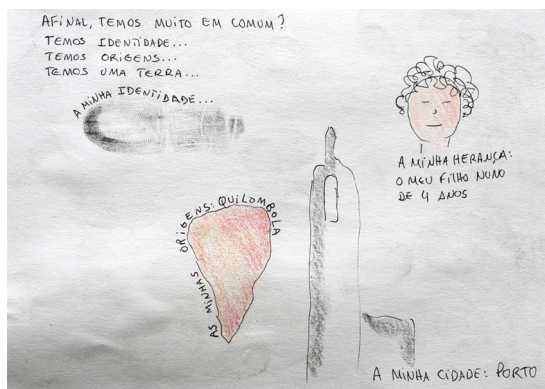 AFINAL, TEMOS MUITO EM COMUM?
TEMOS IDENTIDADE...
TEMOS ORIGENS...
TEMOS UMA TERRA...
A MINHA IDENTIDADE...
A MINHA HERANÇA:
O MEU FILHO NUNO
DE 4 ANOS
AS MINHAS ORIGENS: QUILOMBOLA
A MINHA CIDADE: PORTO